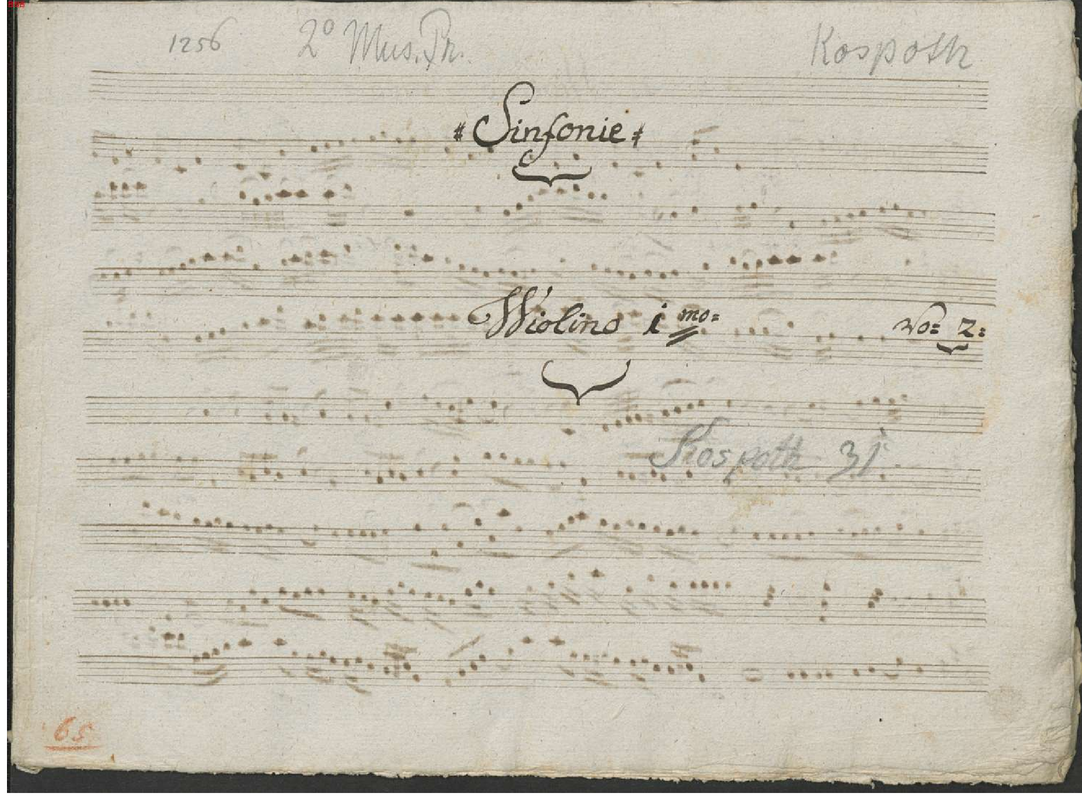 1256 2º Mus. Pr. Kospoth
Sinfonie
Wiolino i mo= No= 2:
Kospoth 31
65